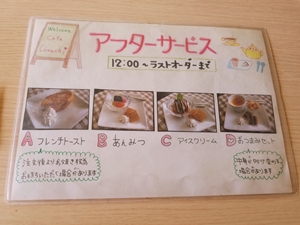 Welcome
Cafe
アフターサービス
12:00～ラストオーダーまで
A フレンチトースト
B あんみつ
C アイスクリーム
D おつまみセット
注文後よりお焼き致し
お待ちいただく場合があります
中身が変わる
場合があります